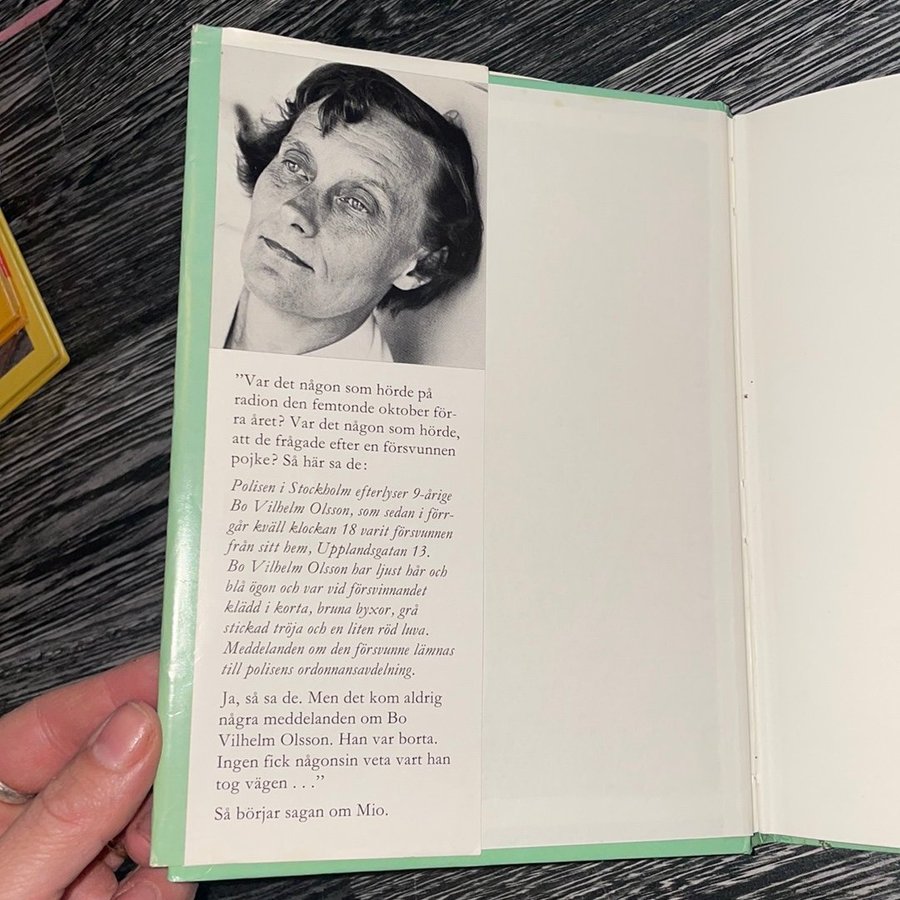 ”Var det någon som hörde på
radion den femtonde oktober för-
ra året? Var det någon som hörde,
att de frågade efter en försvunnen
pojke? Så här sa de:
Polisen i Stockholm efterlyser 9-årige
Bo Vilhelm Olsson, som sedan i förr-
går kväll klockan 18 varit försvunnen
från sitt hem, Upplandsgatan 13.
Bo Vilhelm Olsson har ljust hår och
blå ögon och var vid försvinnandet
klädd i korta, bruna byxor, grå
stickad tröja och en liten röd luva.
Meddelanden om den försvunne lämnas
till polisens ordonnansavdelning.
Ja, så sa de. Men det kom aldrig
några meddelanden om Bo
Vilhelm Olsson. Han var borta.
Ingen fick någonsin veta vart han
tog vägen . . .”
Så börjar sagan om Mio.